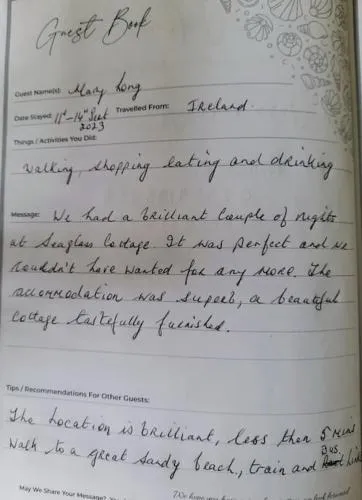 Guest Book
Guest Name(s): Mary Long
Date Stayed: 11th-14th Sept 2023 Travelled From: IReland.
Things / Activities You Did:
walking, shopping eating and drinking
Message: We had a brilliant couple of nights
at Seaglass Cottage. It was perfect and we
couldn't have wanted for any more. The
accommodation was superb, a beautiful
cottage tastefully furnished.
Tips / Recommendations For Other Guests:
The Location is brilliant, less then 5 mins
walk to a great sandy beach, train and Bus.
May We Share Your Message?
We hope you